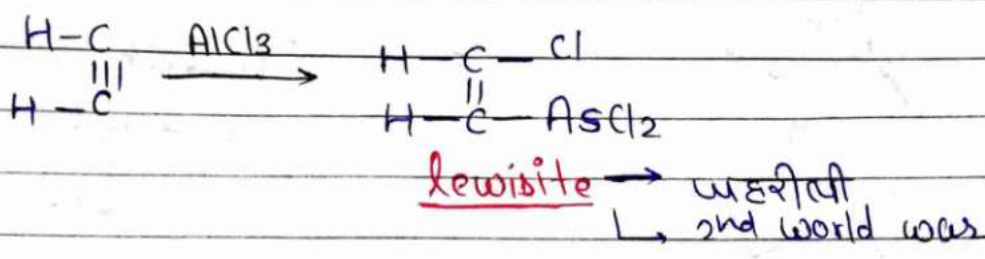 H-C AlCl3 H-C-Cl
||| ⟶ ||
H-C H-C-AsCl2
lewisite → जहरीली
↳ 2nd world war